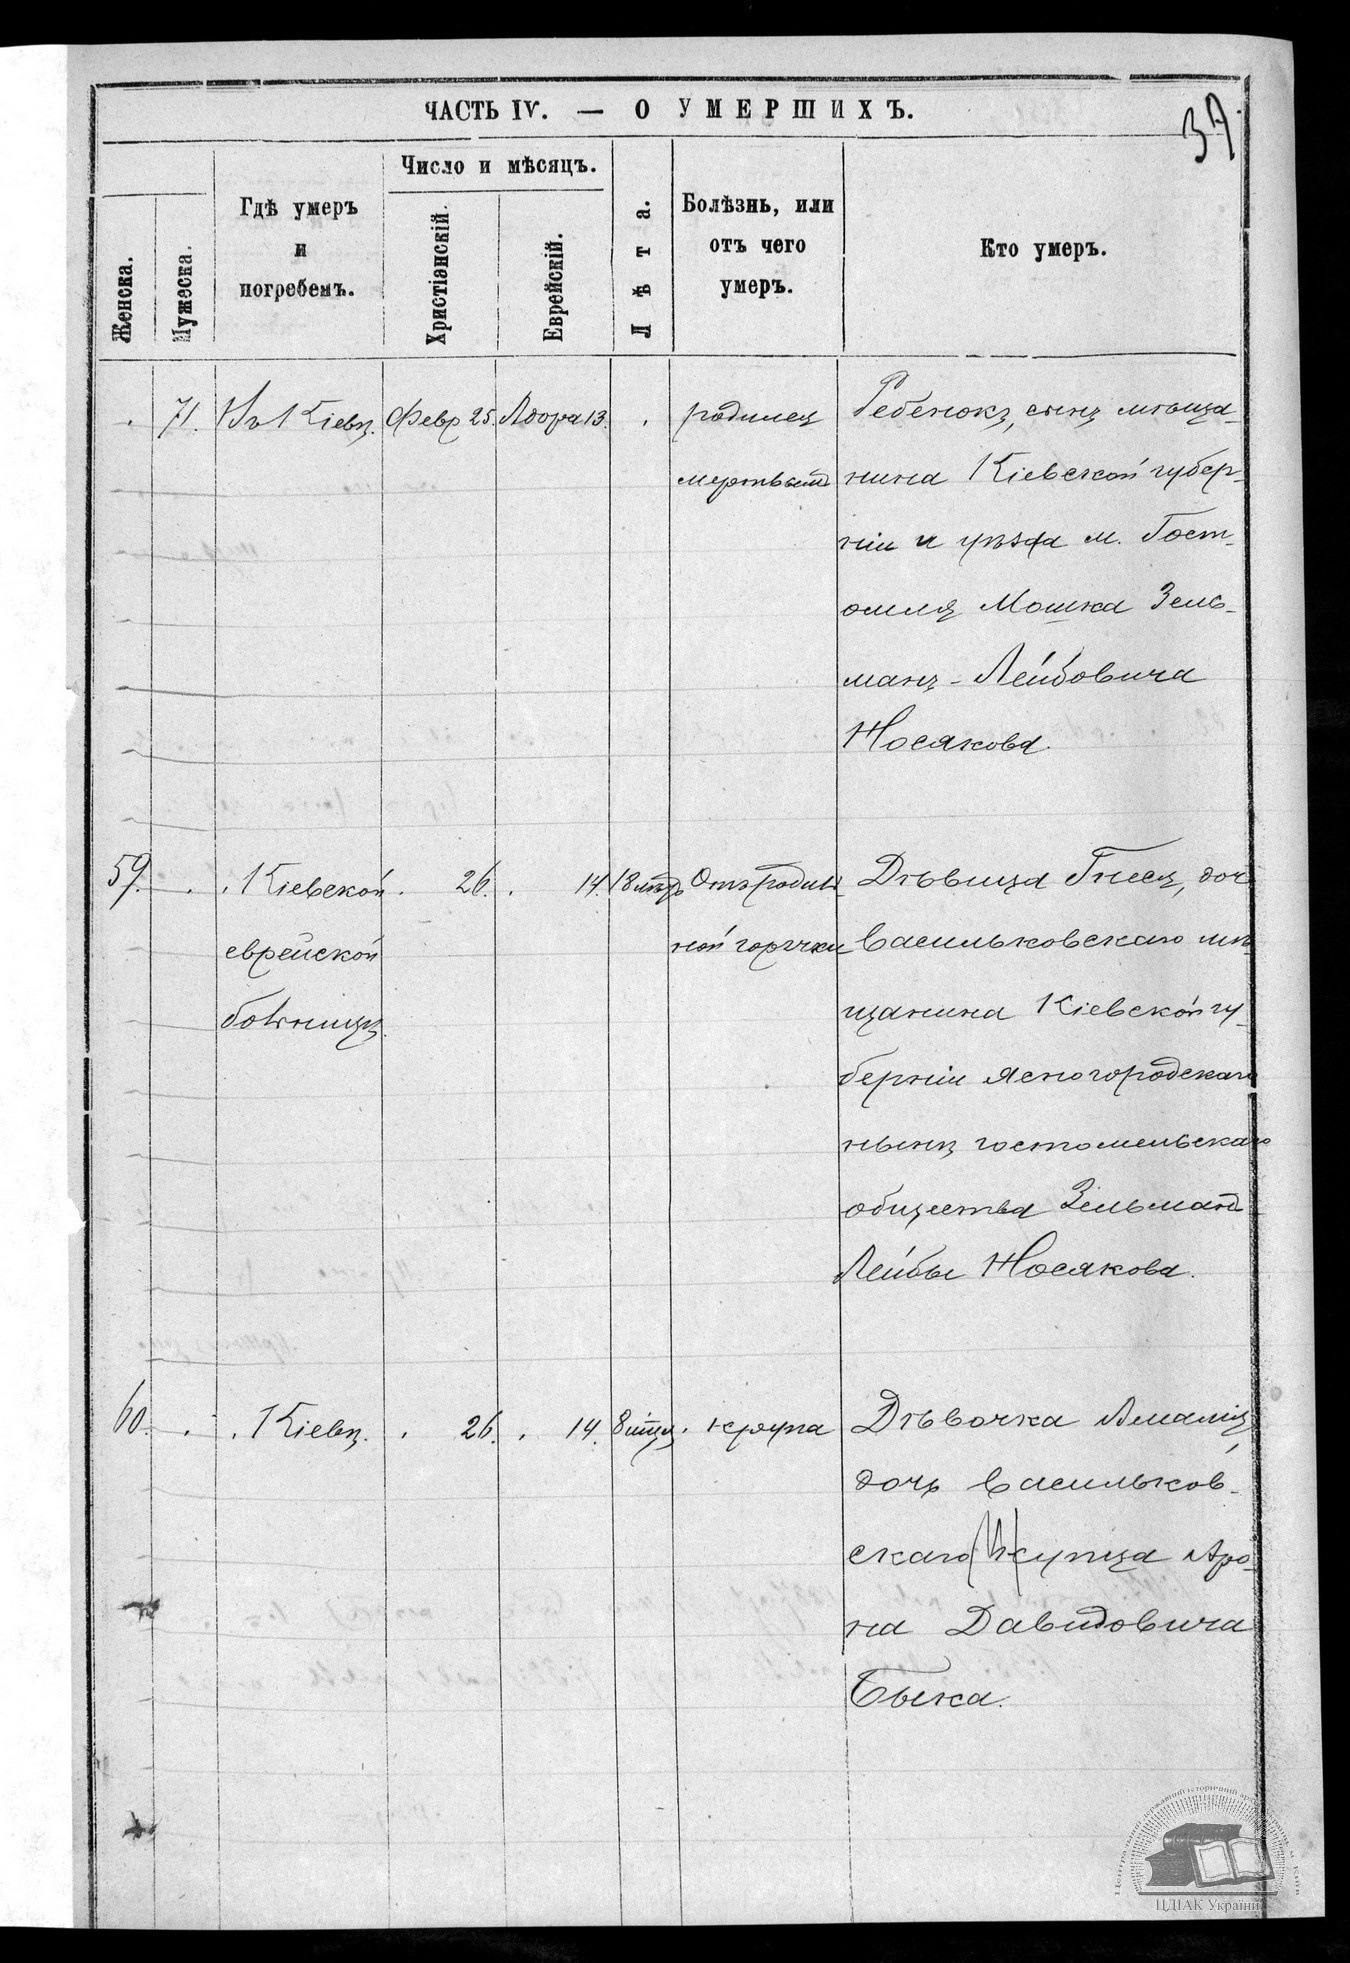 ЧАСТЬ IV. — О УМЕРШИХЪ.
37
Женска.
Мужеска.
Гдѣ умеръ
и
погребенъ.
Число и мѣсяцъ.
Христіанскій.
Еврейскій.
Лѣта.
Болѣзнь, или
отъ чего
умеръ.
Кто умеръ.
71. Въ Кіевѣ. Февр 25. Адора 13. родился Ребенокъ, сынъ мѣща-
мертвый нина Кіевской губер-
ніи и уѣзда м. Гост-
омля Мошка Зель-
манъ-Лейбовича
Носякова.
59. Кіевской 26. 14. 18 лѣтъ Отъ родиль- Дѣвица Гнеся, доч
ной горячки Васильковскаго мѣ
еврейской щанина Кіевской гу-
больницѣ берніи Ясногородскаго
нынѣ гостомельскаго
общества Зельмана
Лейбы Носякова.
60. Кіевѣ. 26. 14. 8 крупа Дѣвочка Амалія,
дочь Васильков-
скаго купца Аро-
на Давидовича
Быка.
ЦДІАК України